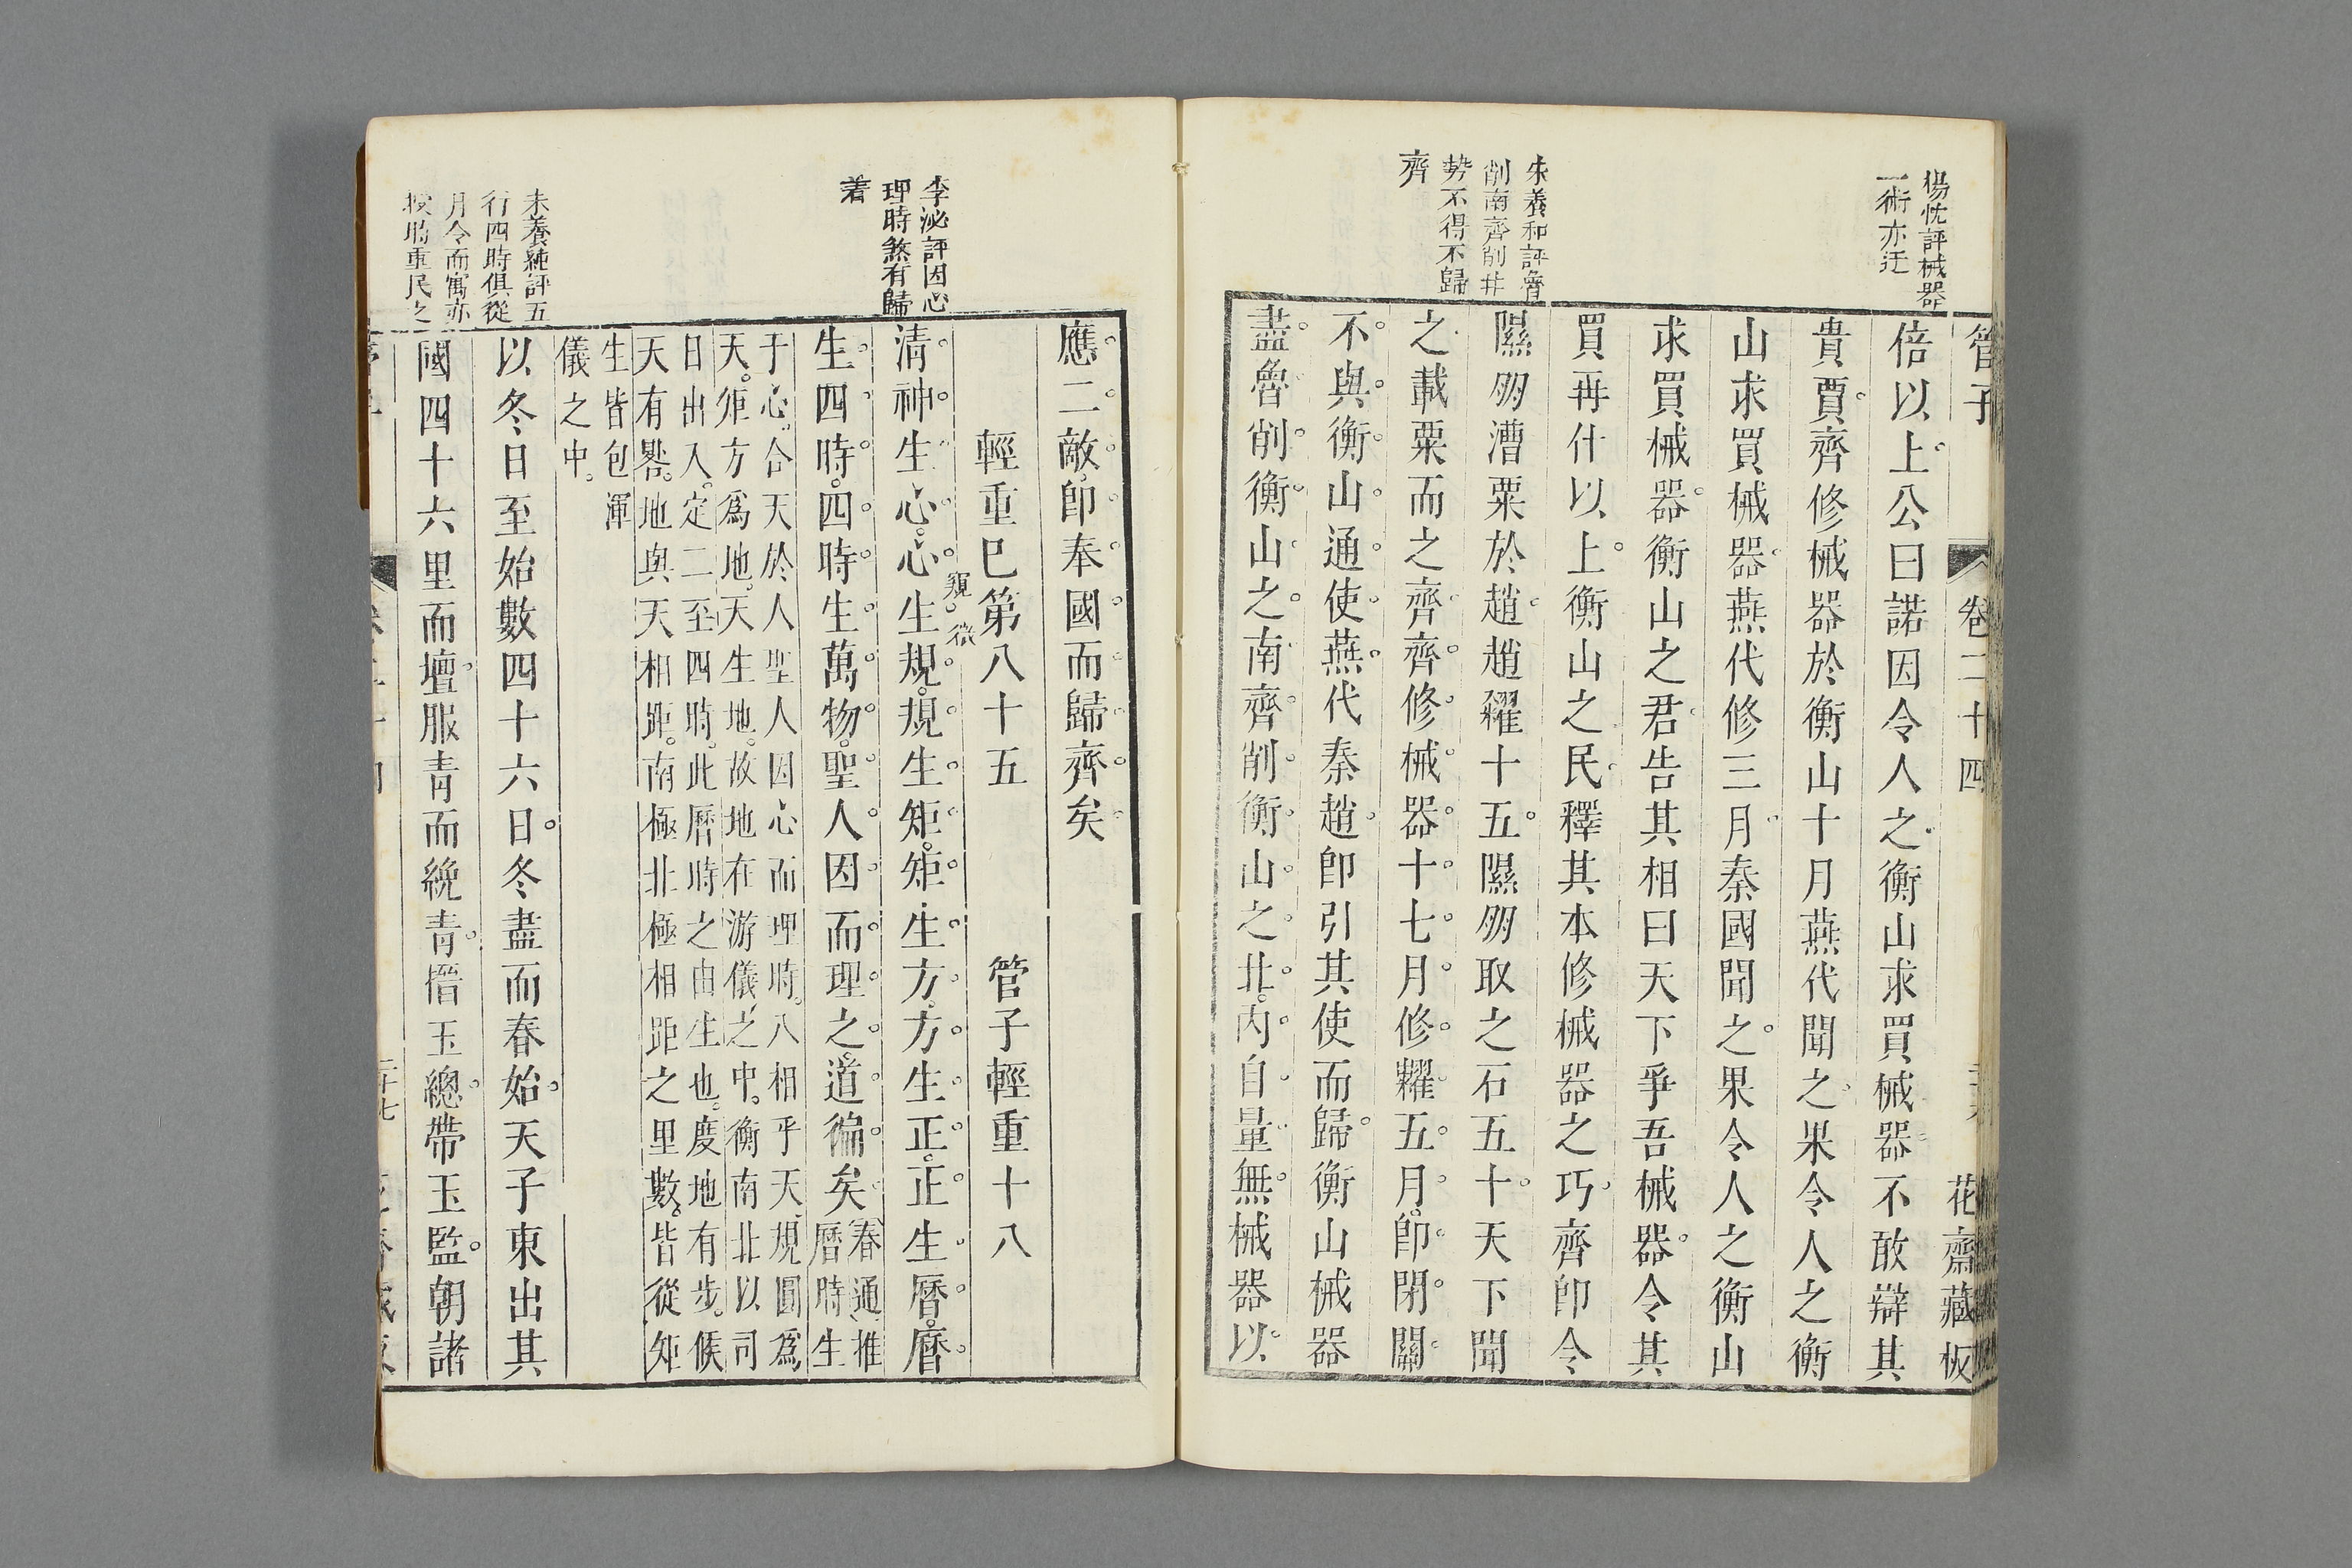 管子
卷二十四
花齋藏板
楊忱評械器
一術亦迂
倍以上公曰諾因令人之衡山求買械器不敢辯其
貴賈齊修械器於衡山十月燕代聞之果令人之衡
山求買械器燕代修三月秦國聞之果令人之衡山
求買械器衡山之君告其相曰天下爭吾械器令其
買再什以上衡山之民釋其本修械器之巧齊卽令
隰朋漕粟於趙趙糴十五隰朋取之石五十天下聞
朱養和評魯
削南齊削北
勢不得不歸
齊
之載粟而之齊齊修械器十七月修糶五月卽閉關
不與衡山通使燕代秦趙卽引其使而歸衡山械器
盡魯削衡山之南齊削衡山之北內自量無械器以
應二敵卽奉國而歸齊矣
輕重巳第八十五 管子輕重十八
李泌評因心
理時煞有歸
着
窺微
清神生心心生規規生矩矩生方方生正正生曆曆
生四時四時生萬物聖人因而理之道徧矣春通推
曆時生
于心合天於人聖人因心而理時八相乎天規圓爲
天矩方爲地天生地故地在游儀之中衡南北以司
日出入定二至四時此曆時之由生也度地有步候
天有晷地與天相距南極北極相距之里數皆從矩
生皆包渾
儀之中
朱養純評五
行四時俱從
月令而寓亦
以冬日至始數四十六日冬盡而春始天子東出其
國四十六里而壇服青而絻青搢玉總帶玉監朝諸
二十七